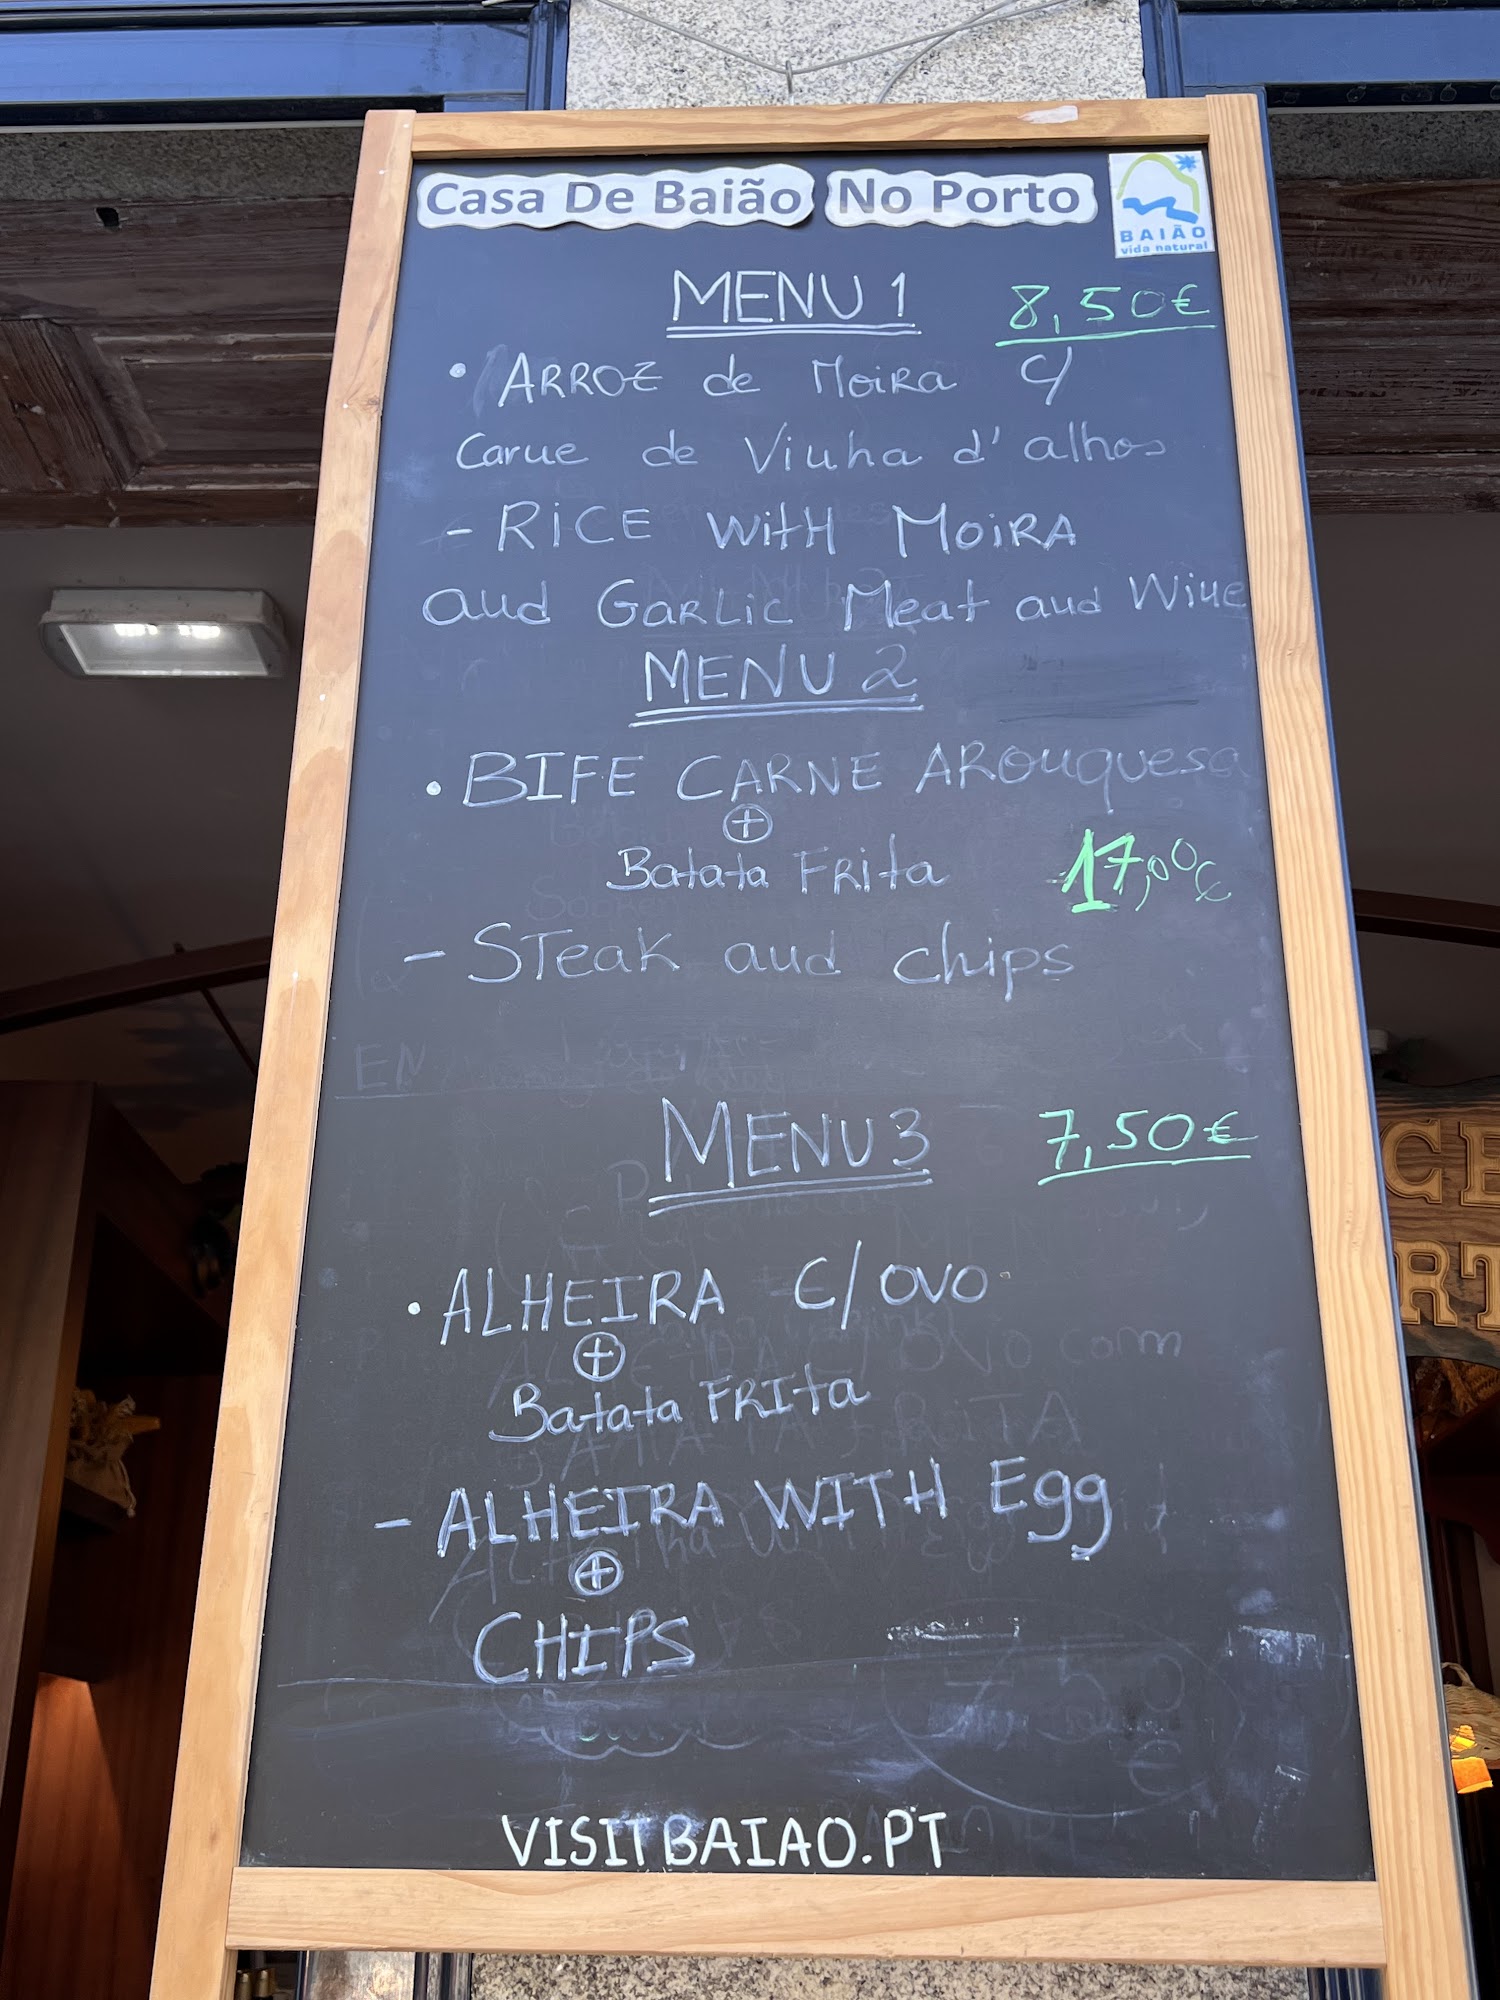 Casa De Baião No Porto
BAIÃO
vida natural
MENU 1 8,50€
• ARROZ de Moira c/
Carne de Vinha d'alhos
- RICE WITH MOIRA
and GARLIC Meat and Wine
MENU 2
• BIFE CARNE AROUQUESA
+
Batata FRita 17,00€
- STeak and chips
EN
MENU 3 7,50€
• ALHEIRA C/ OVO
+
Batata FRITA
- ALHEIRA WITH Egg
+
CHIPS
VISITBAIAO.PT
CE
RT